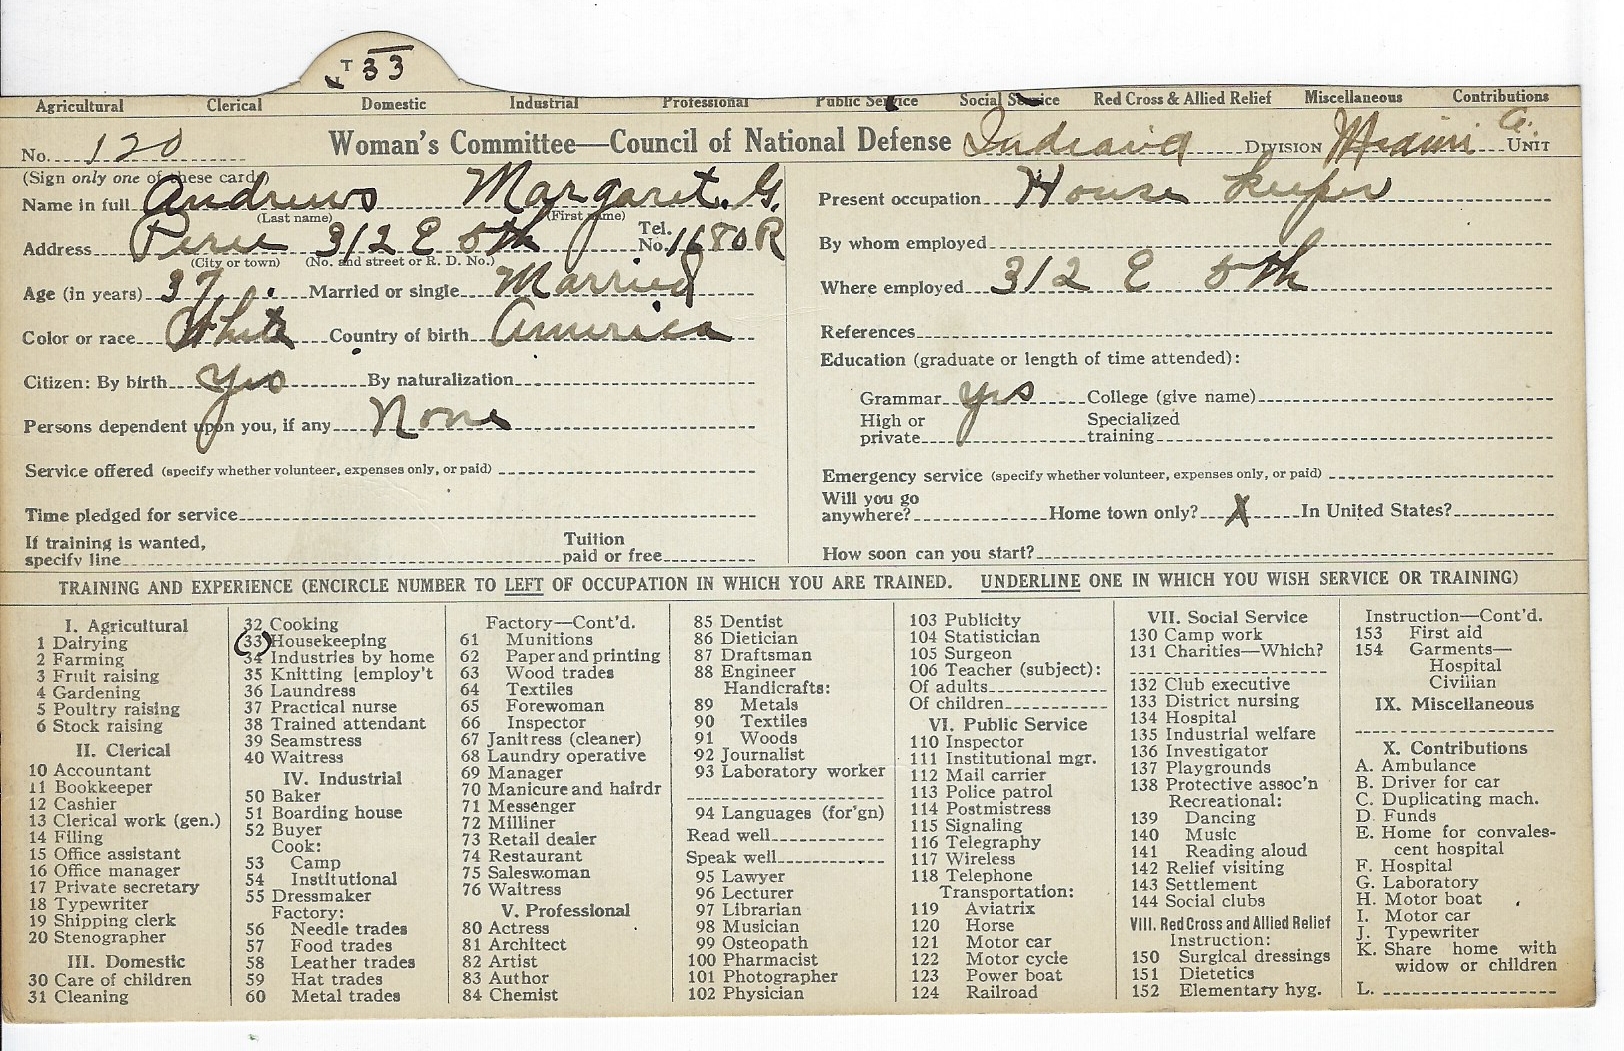 T 33
Agricultural Clerical Domestic Industrial Professional Public Service Social Service Red Cross & Allied Relief Miscellaneous Contributions
No. 120 Woman's Committee—Council of National Defense Indiana DIVISION Miami Co. UNIT
(Sign only one of these cards)
Name in full Andrews Margaret. G.
(Last name) (First name)
Address Peru 312 E 5th Tel. No. 1680R
(City or town) (No. and street or R. D. No.)
Age (in years) 37. Married or single Married
Color or race White Country of birth America
Citizen: By birth yes By naturalization
Persons dependent upon you, if any None
Service offered (specify whether volunteer, expenses only, or paid)
Time pledged for service
If training is wanted, specify line Tuition paid or free
Present occupation House keeper
By whom employed
Where employed 312 E 5th
References
Education (graduate or length of time attended):
Grammar yes College (give name)
High or private Specialized training
Emergency service (specify whether volunteer, expenses only, or paid)
Will you go anywhere? Home town only? X In United States?
How soon can you start?
TRAINING AND EXPERIENCE (ENCIRCLE NUMBER TO LEFT OF OCCUPATION IN WHICH YOU ARE TRAINED. UNDERLINE ONE IN WHICH YOU WISH SERVICE OR TRAINING)
I. Agricultural
1 Dairying
2 Farming
3 Fruit raising
4 Gardening
5 Poultry raising
6 Stock raising
II. Clerical
10 Accountant
11 Bookkeeper
12 Cashier
13 Clerical work (gen.)
14 Filing
15 Office assistant
16 Office manager
17 Private secretary
18 Typewriter
19 Shipping clerk
20 Stenographer
III. Domestic
30 Care of children
31 Cleaning
32 Cooking
33 Housekeeping
34 Industries by home
35 Knitting [employ't
36 Laundress
37 Practical nurse
38 Trained attendant
39 Seamstress
40 Waitress
IV. Industrial
50 Baker
51 Boarding house
52 Buyer
Cook:
53 Camp
54 Institutional
55 Dressmaker
Factory:
56 Needle trades
57 Food trades
58 Leather trades
59 Hat trades
60 Metal trades
Factory—Cont'd.
61 Munitions
62 Paper and printing
63 Wood trades
64 Textiles
65 Forewoman
66 Inspector
67 Janitress (cleaner)
68 Laundry operative
69 Manager
70 Manicure and hairdr
71 Messenger
72 Milliner
73 Retail dealer
74 Restaurant
75 Saleswoman
76 Waitress
V. Professional
80 Actress
81 Architect
82 Artist
83 Author
84 Chemist
85 Dentist
86 Dietician
87 Draftsman
88 Engineer
Handicrafts:
89 Metals
90 Textiles
91 Woods
92 Journalist
93 Laboratory worker
94 Languages (for'gn)
Read well
Speak well
95 Lawyer
96 Lecturer
97 Librarian
98 Musician
99 Osteopath
100 Pharmacist
101 Photographer
102 Physician
103 Publicity
104 Statistician
105 Surgeon
106 Teacher (subject):
Of adults
Of children
VI. Public Service
110 Inspector
111 Institutional mgr.
112 Mail carrier
113 Police patrol
114 Postmistress
115 Signaling
116 Telegraphy
117 Wireless
118 Telephone
Transportation:
119 Aviatrix
120 Horse
121 Motor car
122 Motor cycle
123 Power boat
124 Railroad
VII. Social Service
130 Camp work
131 Charities—Which?
132 Club executive
133 District nursing
134 Hospital
135 Industrial welfare
136 Investigator
137 Playgrounds
138 Protective assoc'n
Recreational:
139 Dancing
140 Music
141 Reading aloud
142 Relief visiting
143 Settlement
144 Social clubs
VIII. Red Cross and Allied Relief
Instruction:
150 Surgical dressings
151 Dietetics
152 Elementary hyg.
Instruction—Cont'd.
153 First aid
154 Garments—
Hospital
Civilian
IX. Miscellaneous
X. Contributions
A. Ambulance
B. Driver for car
C. Duplicating mach.
D. Funds
E. Home for convales-
cent hospital
F. Hospital
G. Laboratory
H. Motor boat
I. Motor car
J. Typewriter
K. Share home with
widow or children
L.